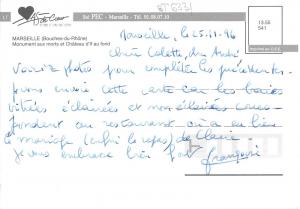 Sté PEC - Marseille - Tél. 91.69.07.10
MARSEILLE (Bouches-du-Rhône)
Monument aux morts et Château d'If au fond
Marseille, le 25.11.96
Chère Colette, cher André
Voici photo pour compléter les précédentes
pour envoi cette carte car les baies
vitrées éclairées et non éclairées corres-
pondent au restaurant où a eu lieu
le mariage (enfin le repas) de Claire
je vous embrasse bien fort
François
13.56
541